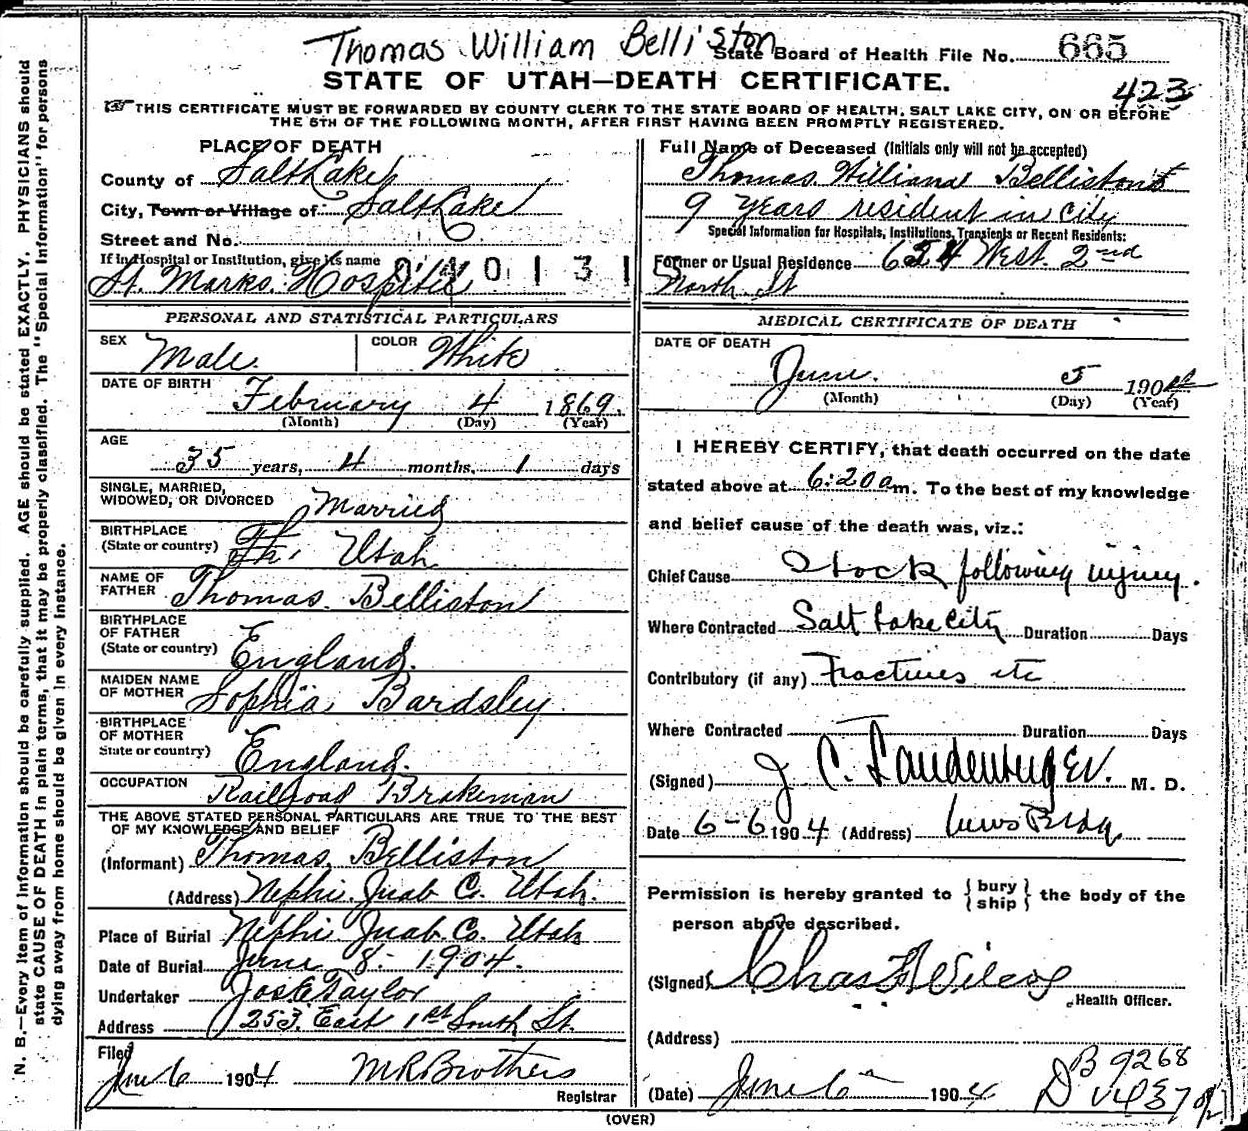 Thomas William Belliston
State Board of Health File No. 665
STATE OF UTAH—DEATH CERTIFICATE.
423
☞ THIS CERTIFICATE MUST BE FORWARDED BY COUNTY CLERK TO THE STATE BOARD OF HEALTH, SALT LAKE CITY, ON OR BEFORE
THE 5TH OF THE FOLLOWING MONTH, AFTER FIRST HAVING BEEN PROMPTLY REGISTERED.
PLACE OF DEATH
County of Salt Lake
City, Town or Village of Salt Lake
Street and No.
If in Hospital or Institution, give its name
040131
St. Marks Hospital
PERSONAL AND STATISTICAL PARTICULARS
SEX Male COLOR White
DATE OF BIRTH
February 4 1869.
(Month) (Day) (Year)
AGE
35 years, 4 months, 1 days
SINGLE, MARRIED,
WIDOWED, OR DIVORCED Married
BIRTHPLACE
(State or country) Utah
NAME OF
FATHER Thomas Belliston
BIRTHPLACE
OF FATHER
(State or country) England.
MAIDEN NAME
OF MOTHER Sophia Bardsley
BIRTHPLACE
OF MOTHER
State or country) England.
OCCUPATION Railroad Brakeman
THE ABOVE STATED PERSONAL PARTICULARS ARE TRUE TO THE BEST
OF MY KNOWLEDGE AND BELIEF
(Informant) Thomas Belliston
(Address) Nephi Juab Co. Utah.
Place of Burial Nephi Juab Co. Utah
Date of Burial June 8 - 1904.
Undertaker Jos E Taylor
Address 253 East 1st South St.
Filed
June 6 1904 M R Brothers
Registrar
Full Name of Deceased (Initials only will not be accepted)
Thomas William Belliston
9 years resident in city
Special Information for Hospitals, Institutions, Transients or Recent Residents:
Former or Usual Residence 654 West. 2nd
North St
MEDICAL CERTIFICATE OF DEATH
DATE OF DEATH
June. 5 1904
(Month) (Day) (Year)
I HEREBY CERTIFY, that death occurred on the date
stated above at 6:20 a m. To the best of my knowledge
and belief cause of the death was, viz.:
Chief Cause Shock following injury.
Where Contracted Salt Lake City Duration Days
Contributory (if any) Fractures etc
Where Contracted Duration Days
(Signed) J C. Landenberger. M. D.
Date 6-6 1904 (Address) News Bldg.
Permission is hereby granted to { bury ship } the body of the
person above described.
(Signed) Chas F Wilcox
Health Officer.
(Address)
(Date) June 6 1904
B 9268
(OVER)
N. B.—Every item of information should be carefully supplied. AGE should be stated EXACTLY. PHYSICIANS should
state CAUSE OF DEATH in plain terms, that it may be properly classified. The "Special Information" for persons
dying away from home should be given in every instance.